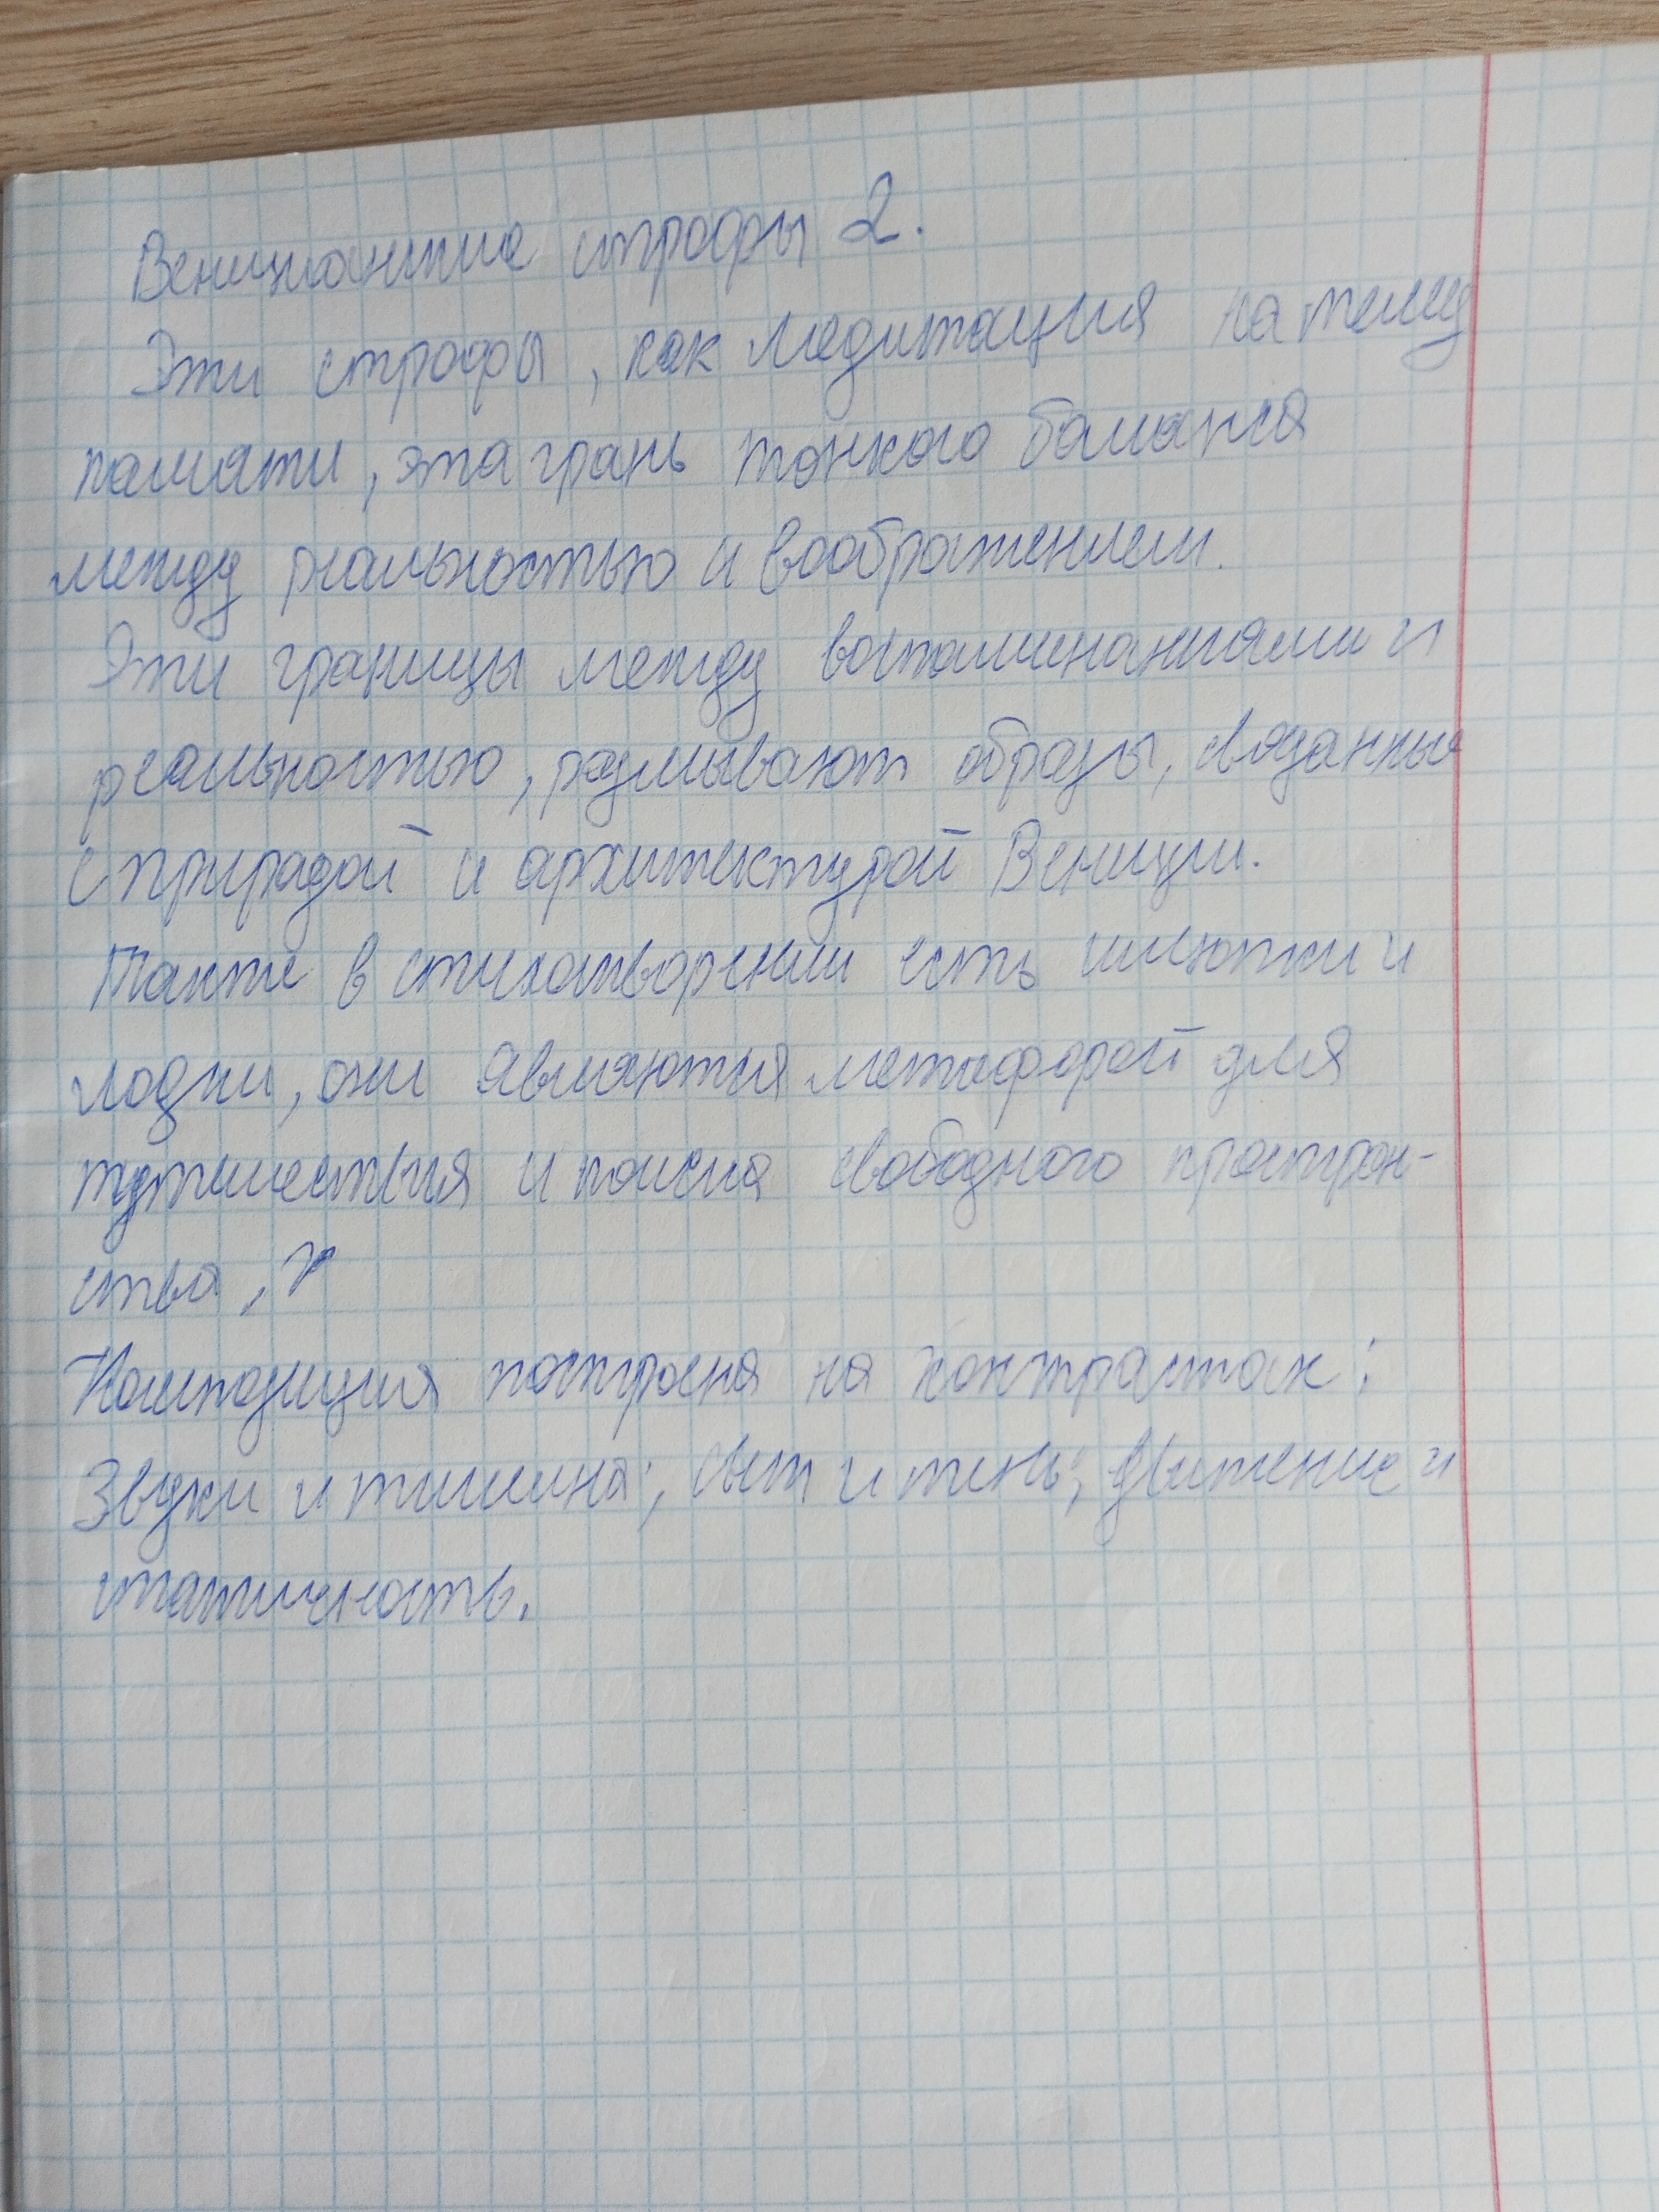 Венецианские строфы 2.
Эти строфы, как медитация на тему
памяти, эта грань тонкого баланса
между реальностью и воображением.
Эти границы между воспоминаниями и
реальностью, размывают образы, связанные
с природой и архитектурой Венеции.
Также в стихотворении есть шлюпки и
лодки, они являются метафорой для
путешествия и поиска свободного простран-
ства,
Композиция построена на контрастах:
Звуки и тишина; свет и тень; движение и
статичность.